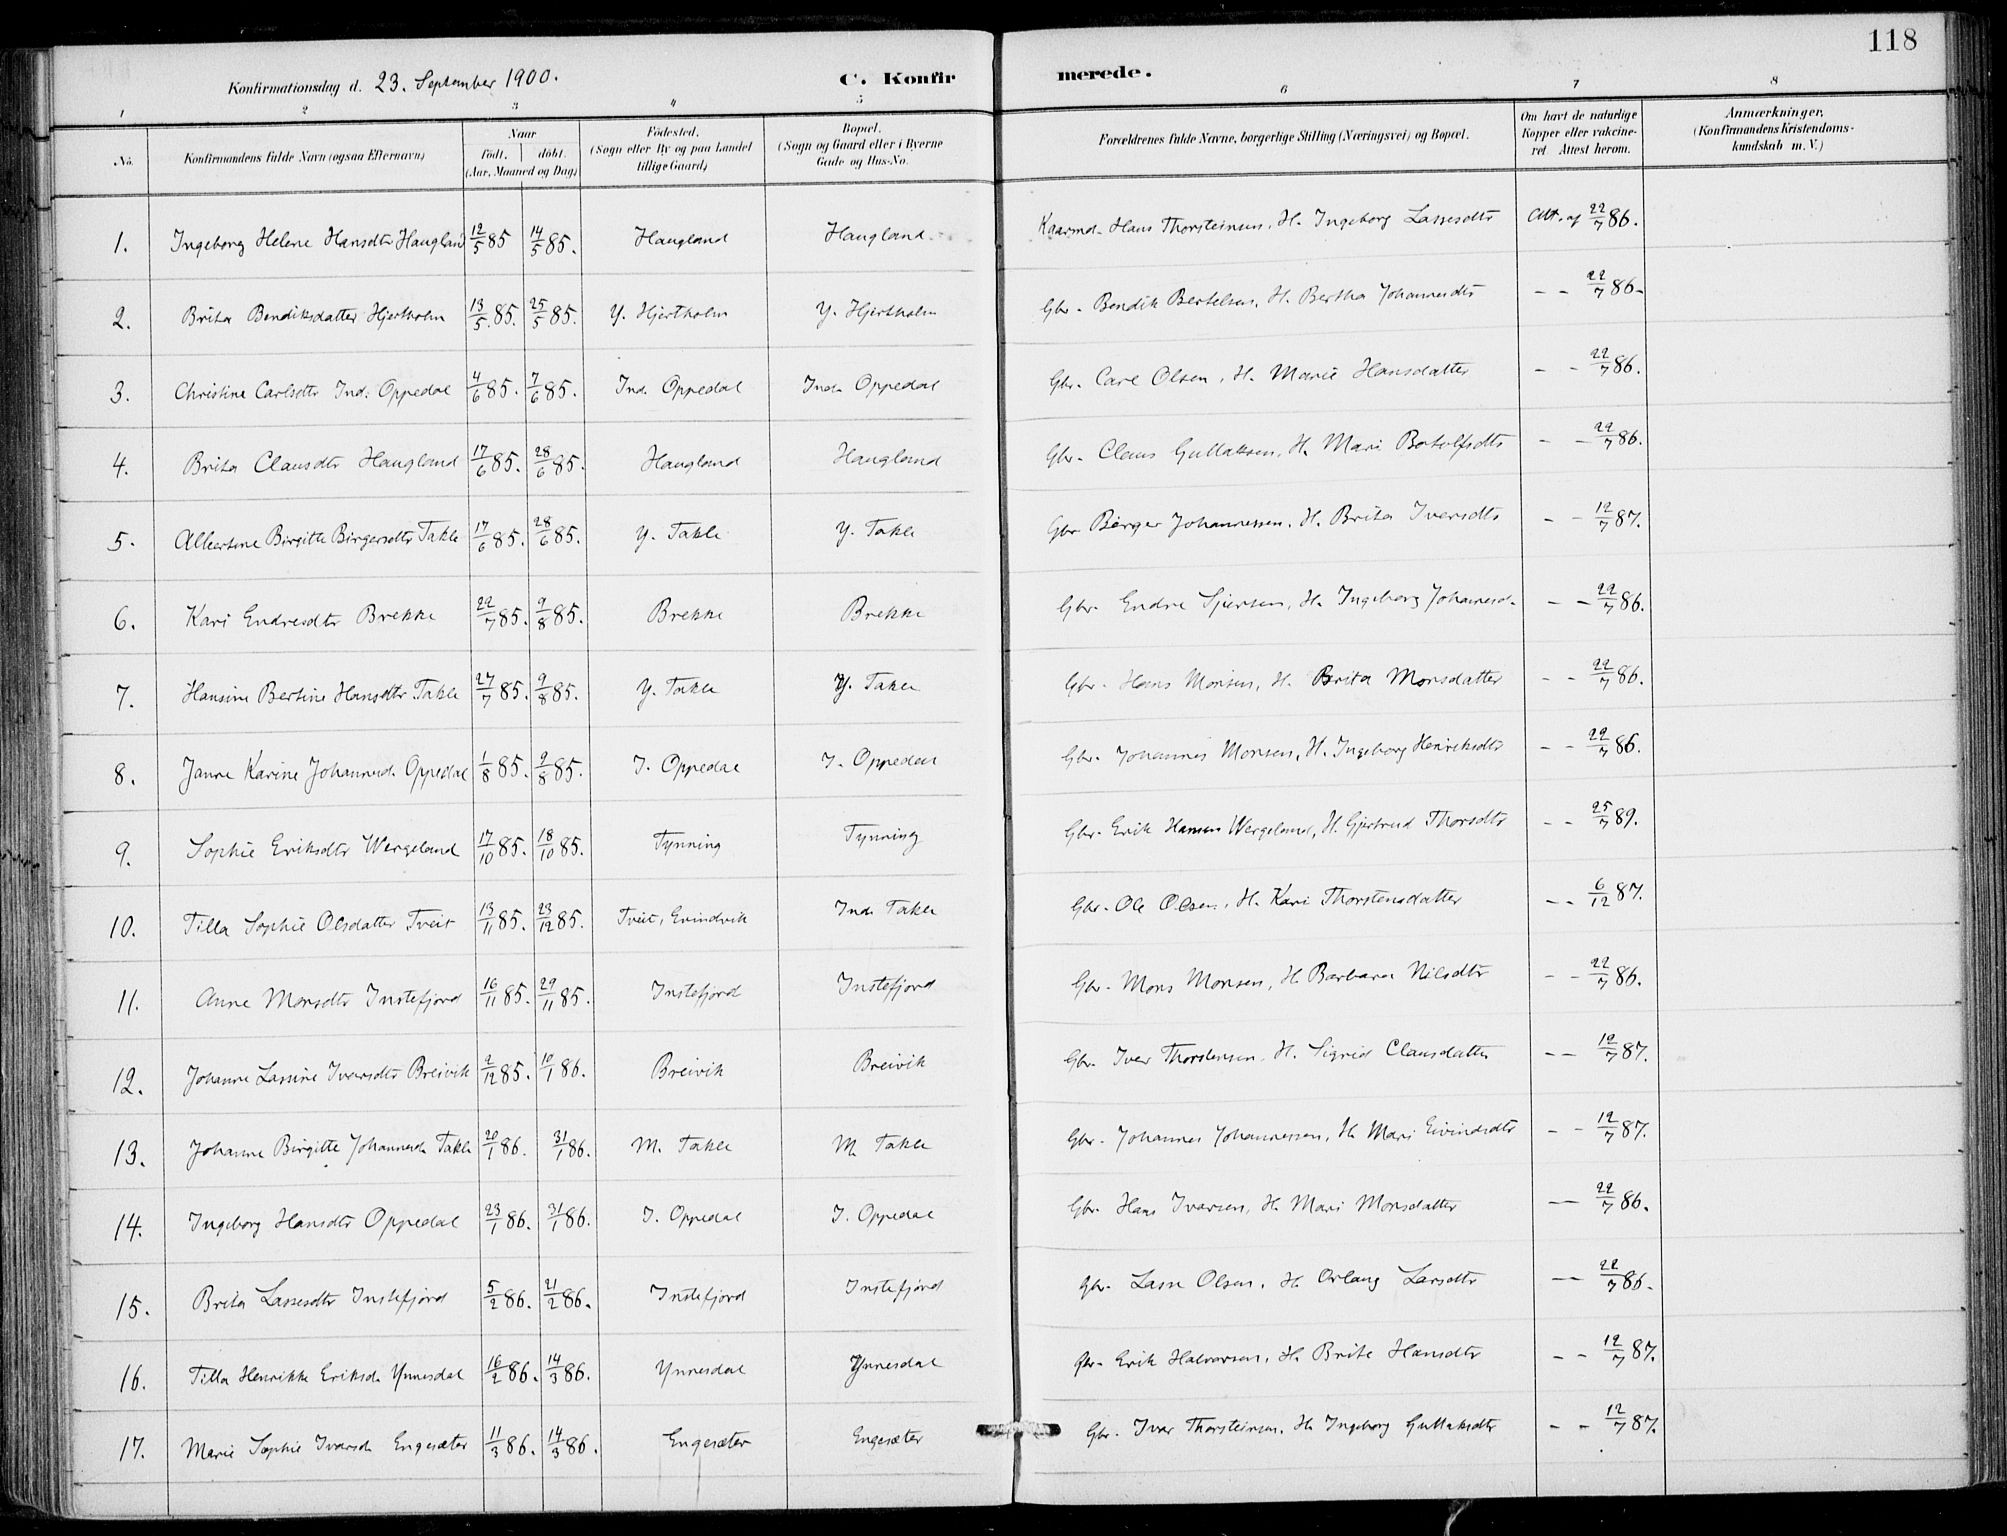 118
Konfirmationsdag d. 23. September 1900. C. Konfirmerede.
1 2 3 4 5 6 7 8
No. Konfirmandens fulde Navn (ogsaa Efternavn) Naar født. døbt. (Aar, Maaned og Dag) Fødested. (Sogn eller By og paa Landet tillige Gaard) Bopæl. (Sogn og Gaard eller i Byerne Gade og Hus-No. Forældrenes fulde Navne, borgerlige Stilling (Næringsvei) og Bopæl. Om havt de naturlige Kopper eller vakcineret. Attest herom. Anmærkninger, (Konfirmandens Kristendomskundskab m. V.)
1. Ingeborg Helene Hansdtr Haugland 12/5 85 14/5 85. Haugland Haugland Kaarmd. Hans Thorsteinsen, H. Ingeborg Lassesdtr Att. af 22/7 86.
2. Brita Bendiksdatter Hjertholm 13/5 85. 25/5 85. Y. Hjertholm Y. Hjertholm Gbr. Bendik Bertelsen, H. Bertha Johannesdtr - - 22/7 86.
3. Christine Carlsdtr Ind. Oppedal 4/6 85. 7/6 85. Ind. Oppedal Ind. Oppedal Gbr. Carl Olsen, H. Marie Hansdatter - - 22/7 86.
4. Brita Clausdtr Haugland 17/6 85. 28/6 85. Haugland Haugland Gbr. Claus Guttaksen, H. Mari Botolfsdtr - - 22/7 86.
5. Albertine Birgitte Birgersdtr Takle 17/6 85. 28/6 85. Y. Takle Y. Takle Gbr Børger Johannessen, H. Brita Iversdtr - - 12/7 87.
6. Kari Endresdtr Brekke 22/7 85. 9/8 85. Brekke Brekke Gbr. Endre Sjursen, H. Ingeborg Johannesd. - - 22/7 86.
7. Hansine Bertine Hansdtr Takle 27/7 85. 9/8 85. Y. Takle Y. Takle Gbr. Hans Monsen, H. Brita Monsdatter - - 22/7 86.
8. Janne Karine Johannesd. Oppedal 1/8 85. 9/8 85. I. Oppedal I. Oppedal Gbr. Johannes Monsen, H. Ingeborg Henriksdtr - - 22/7 86.
9. Sophie Eriksdtr Wergeland 17/10 85. 18/10 85. Tynning Tynning Gbr. Erik Hansen Wergeland, H. Gjertrud Thorsdtr - - 25/7 89.
10. Tilla Sophie Olsdatter Tveit 13/11 85. 23/12 85. Tveit, Evindvik Ind. Takle Gbr. Ole Olsen, H. Kari Thorstensdatter - - 6/12 87.
11. Anne Monsdtr Instefjord 16/11 85. 29/11 85. Instefjord Instefjord Gbr. Mons Monsen, H. Barbara Nilsdtr - - 22/7 86.
12. Johanne Lassine Ivarsdtr Breivik 2/12 85. 10/1 86. Breivik Breivik Gbr. Iver Thorstensen, H. Sigrid Clausdatter - - 12/7 87.
13. Johanne Birgitte Johannesd. Takle 20/1 86. 31/1 86. M. Takle M. Takle Gbr. Johannes Johannessen, H. Mari Eivindsdtr - - 12/7 87.
14. Ingeborg Hansdtr Oppedal 23/1 86. 31/1 86. I. Oppedal I. Oppedal Gbr. Hans Ivarsen, H. Mari Monsdatter - - 22/7 86.
15. Brita Lassesdtr Instefjord 5/2 86. 21/2 86. Instefjord Instefjord Gbr. Lasse Olsen, H. Orlaug Larsdtr - - 22/7 86.
16. Tilla Henrikke Eriksd. Ynnesdal 16/2 86. 14/3 86. Ynnesdal Ynnesdal Gbr. Erik Halvorsen, H. Brite Hansdtr - - 12/7 87.
17. Marie Sophie Ivarsd. Engesæter 11/3 86. 14/3 86. Engesæter Engesæter Gbr. Ivar Thorsteinsen, H. Ingeborg Guttaksdtr - - 12/7 87.